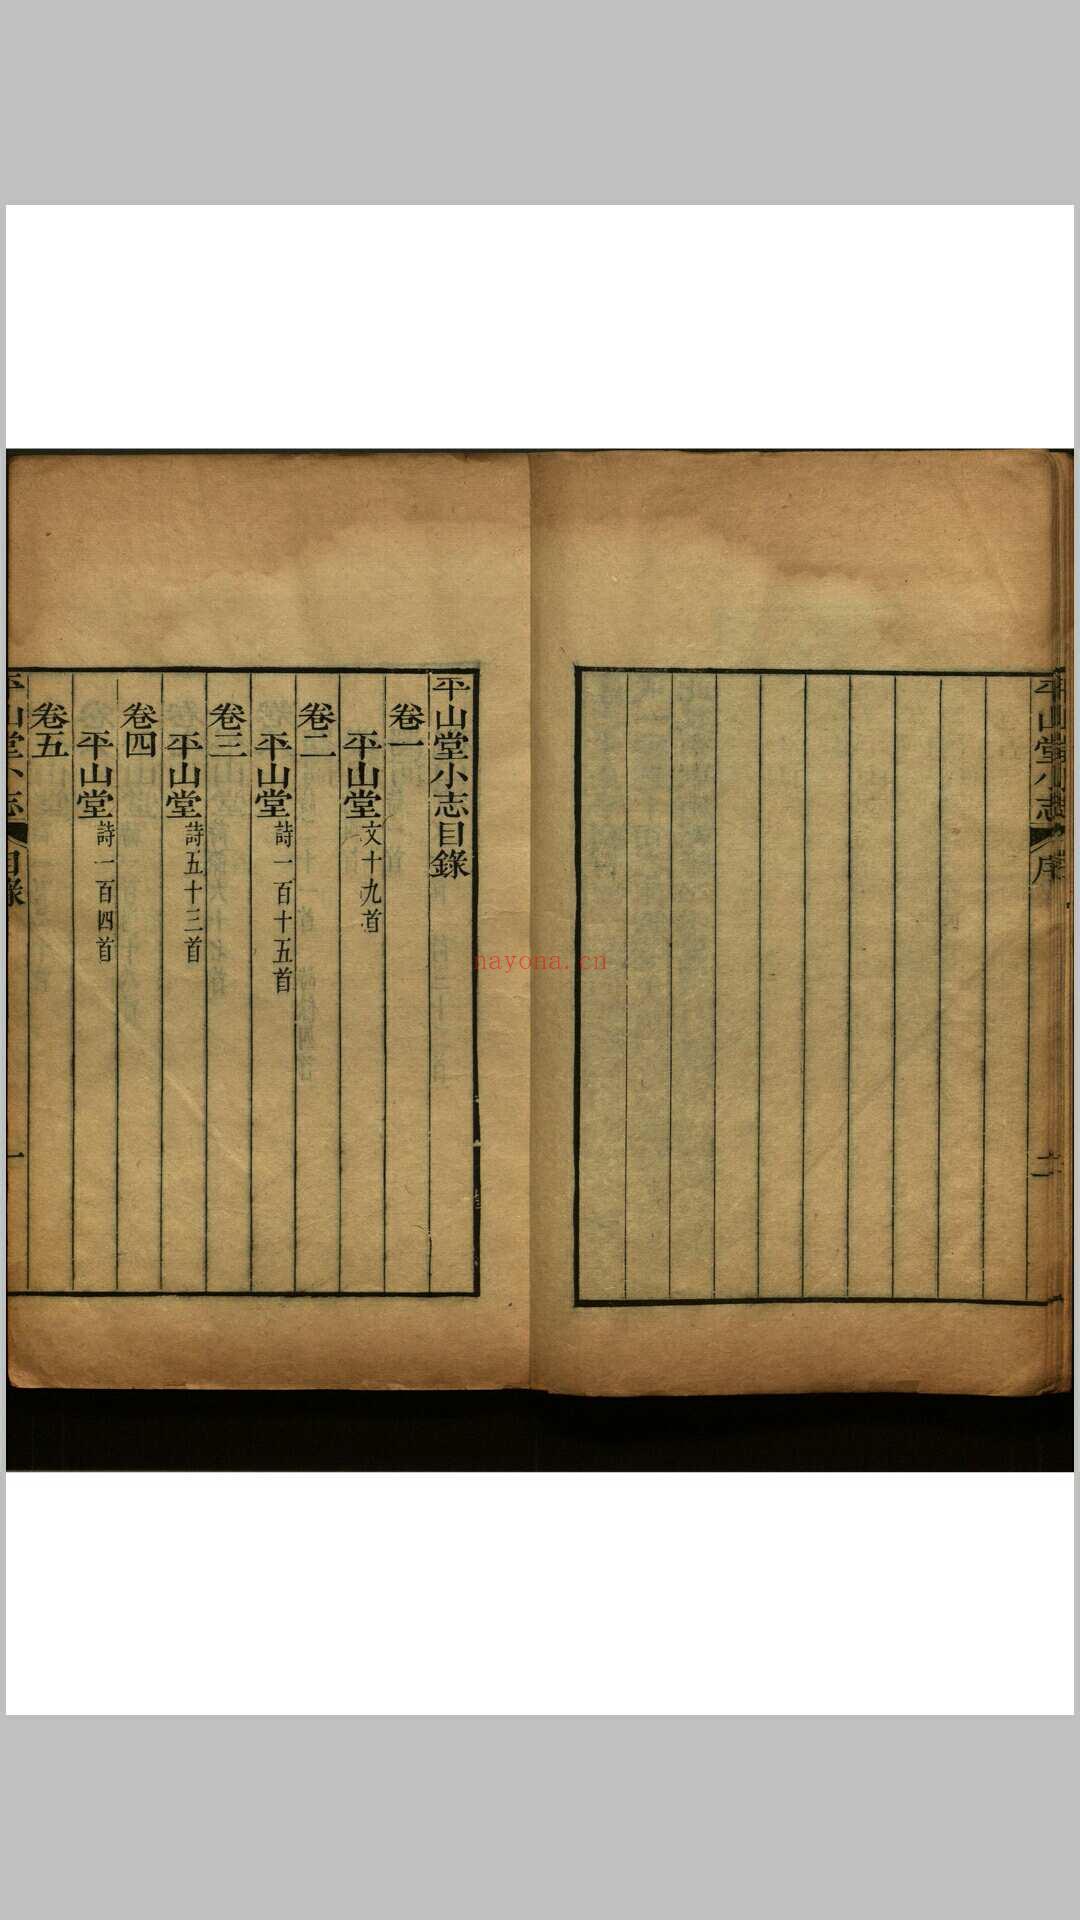 平山堂小志
序
二
平山堂小志目錄
卷一
平山堂文十九首
卷二
平山堂詩一百十五首
卷三
平山堂詩五十三首
卷四
平山堂詩一百四首
卷五
平山堂小志
目錄
一
nayona.cn